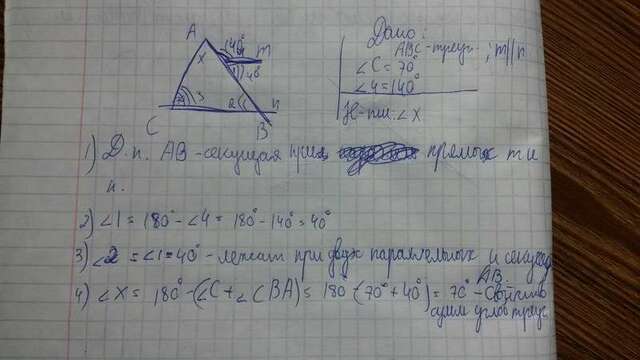 A
140°
m
x
1) 40°
3
2
n
C
B
Дано:
ABC-треуг. ; m||n
∠C=70°
∠4=140°
∠x
1) Д.п. AB - секущая прямых m и
n.
2) ∠1 = 180° - ∠4 = 180° - 140° = 40°
3) ∠2 = ∠1 = 40° - лежат при двух параллельных и секущей
AB.
4) ∠X = 180° - (∠C + ∠CBA) = 180° - (70° + 40°) = 70° - свойство
сумм углов треуг.